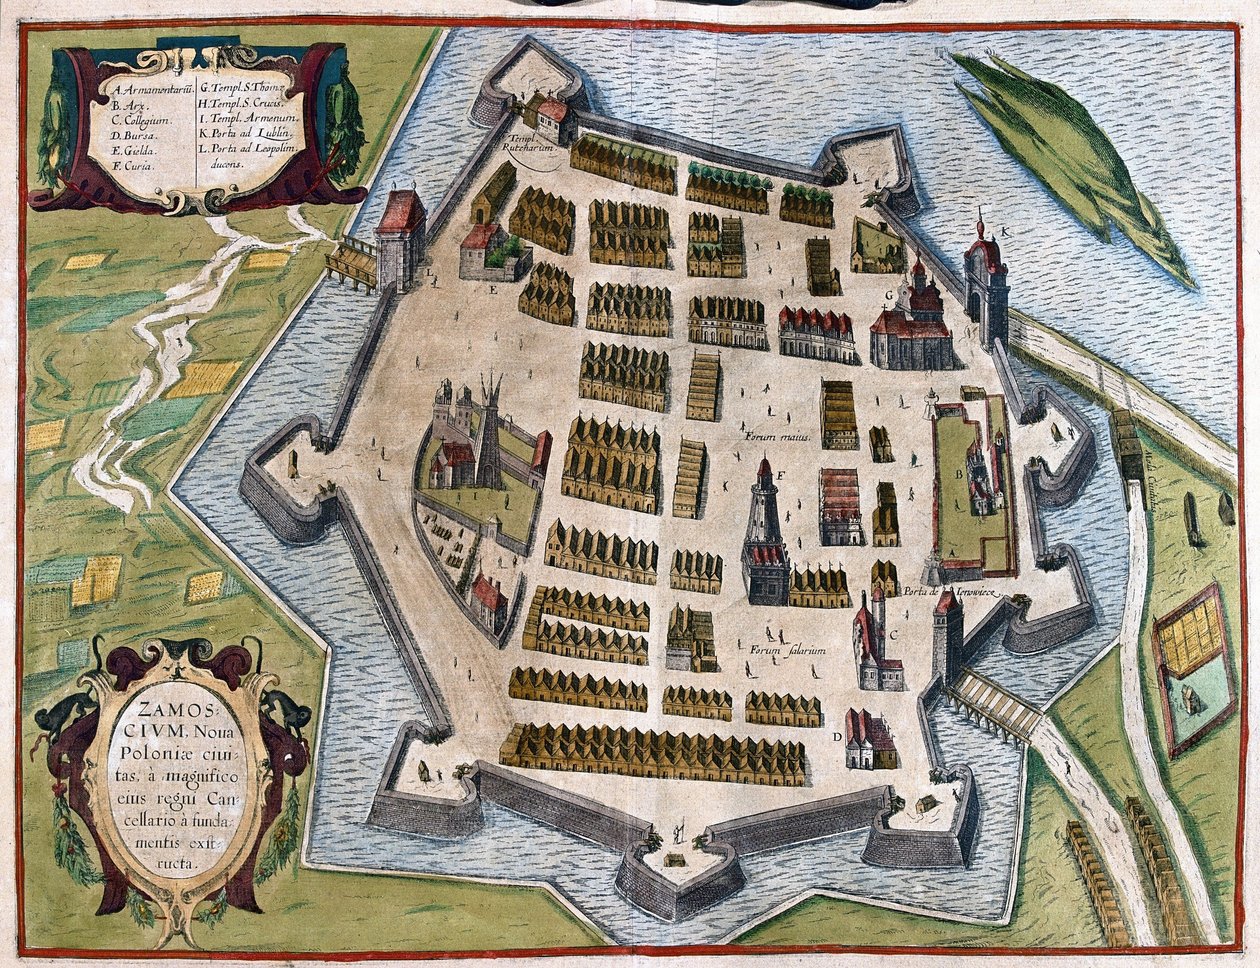 A. Armamentariū.
B. Arx.
C. Collegium.
D. Bursa.
E. Gielda.
F. Curia.
G. Templ. S. Thomæ
H. Templ. S. Crucis.
I. Templ. Armenum.
K. Porta ad Lublin.
L. Porta ad Leopolim
ducens.
Templ.
Rutenarum.
K
L
E
G
Forum maius.
F
B
A
Porta de Ienowiecz
C
Forum salarium
D
ZAMOS-
CIVM, Noua
Poloniæ ciui-
tas, à magnifico
eius regni Can-
cellario à funda-
mentis exst-
ructa.